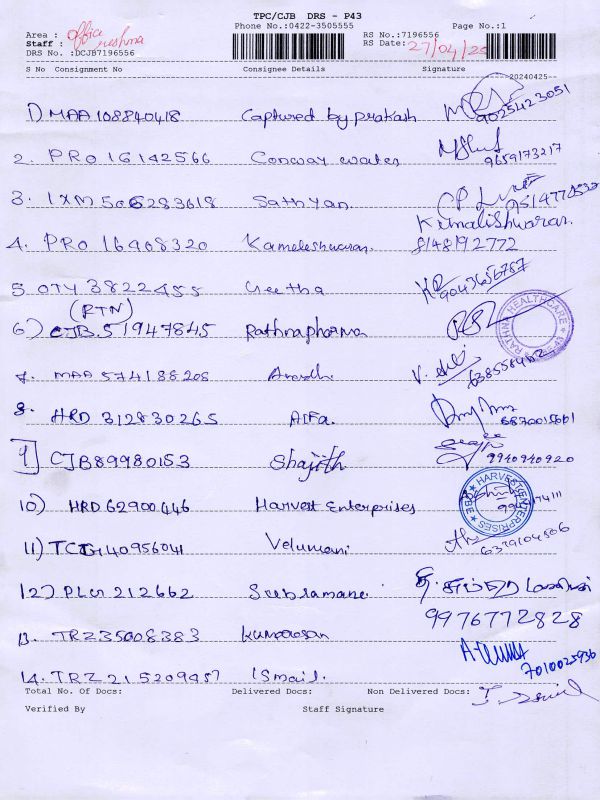 TPC/CJB DRS - P43
Phone No.:0422-3505555
Page No.:1
Area : office
Staff : reshma
DRS No. :DCJB7196556
RS No.:7196556
RS Date: 27/04/25
S No Consignment No Consignee Details Signature
20240425
1) MAA 108840418 Captured by prakash 9025423051
2. PRO 16142566 Conway water 9659173217
3. IXM 506283618 Sathyan
Kamalishwaran.
4. PRO 16408320 Kameleshwaran. 8148192772
5. OTY 3822455 Geetha 9043656787
(RTN)
6) CJB 51947845 Rathnapharma RATHNA HEALTHCARE
7. MAA 574188205
8. HRD 312830265 Alfa.
9] CJB89980153 Shajith 9940940920
10) HRD 62900446 Harvest Enterprises HARVEST ENTERPRISES
11) 40956041 Velumani 6379104506
12) 212662 Subramani
9976772828
13. TRZ35008383 Kumaresan
7010025936
14. TRZ 215209457 Ismail.
Total No. Of Docs: Delivered Docs: Non Delivered Docs:
Verified By Staff Signature